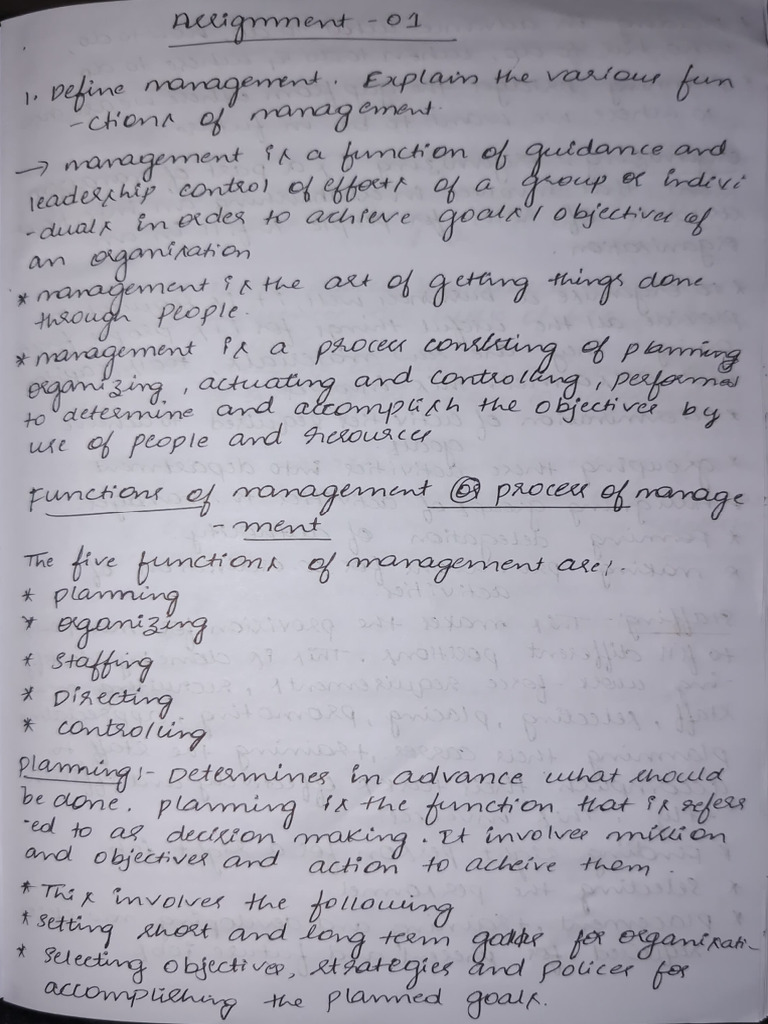 Assignment - 01
1. Define management. Explain the various fun
-ctions of management.
→ management is a function of guidance and
leadership control of efforts of a group or indivi
-duals in order to achieve goals / objectives of
an organisation
* management is the art of getting things done
through people.
* management is a process consisting of planning
organizing, actuating and controlling, performed
to determine and accomplish the objectives by
use of people and resources
Functions of management or process of manage
- ment
The five functions of management are:
* planning
* organizing
* staffing
* Directing
* controlling
planning :- Determines in advance what should
be done. planning is the function that is refers
-ed to as decision making. It involves mission
and objectives and action to acheive them
* This involves the following
* setting short and long term goals for organisati-
* selecting objectives, strategies and polices for
accomplishing the planned goals.